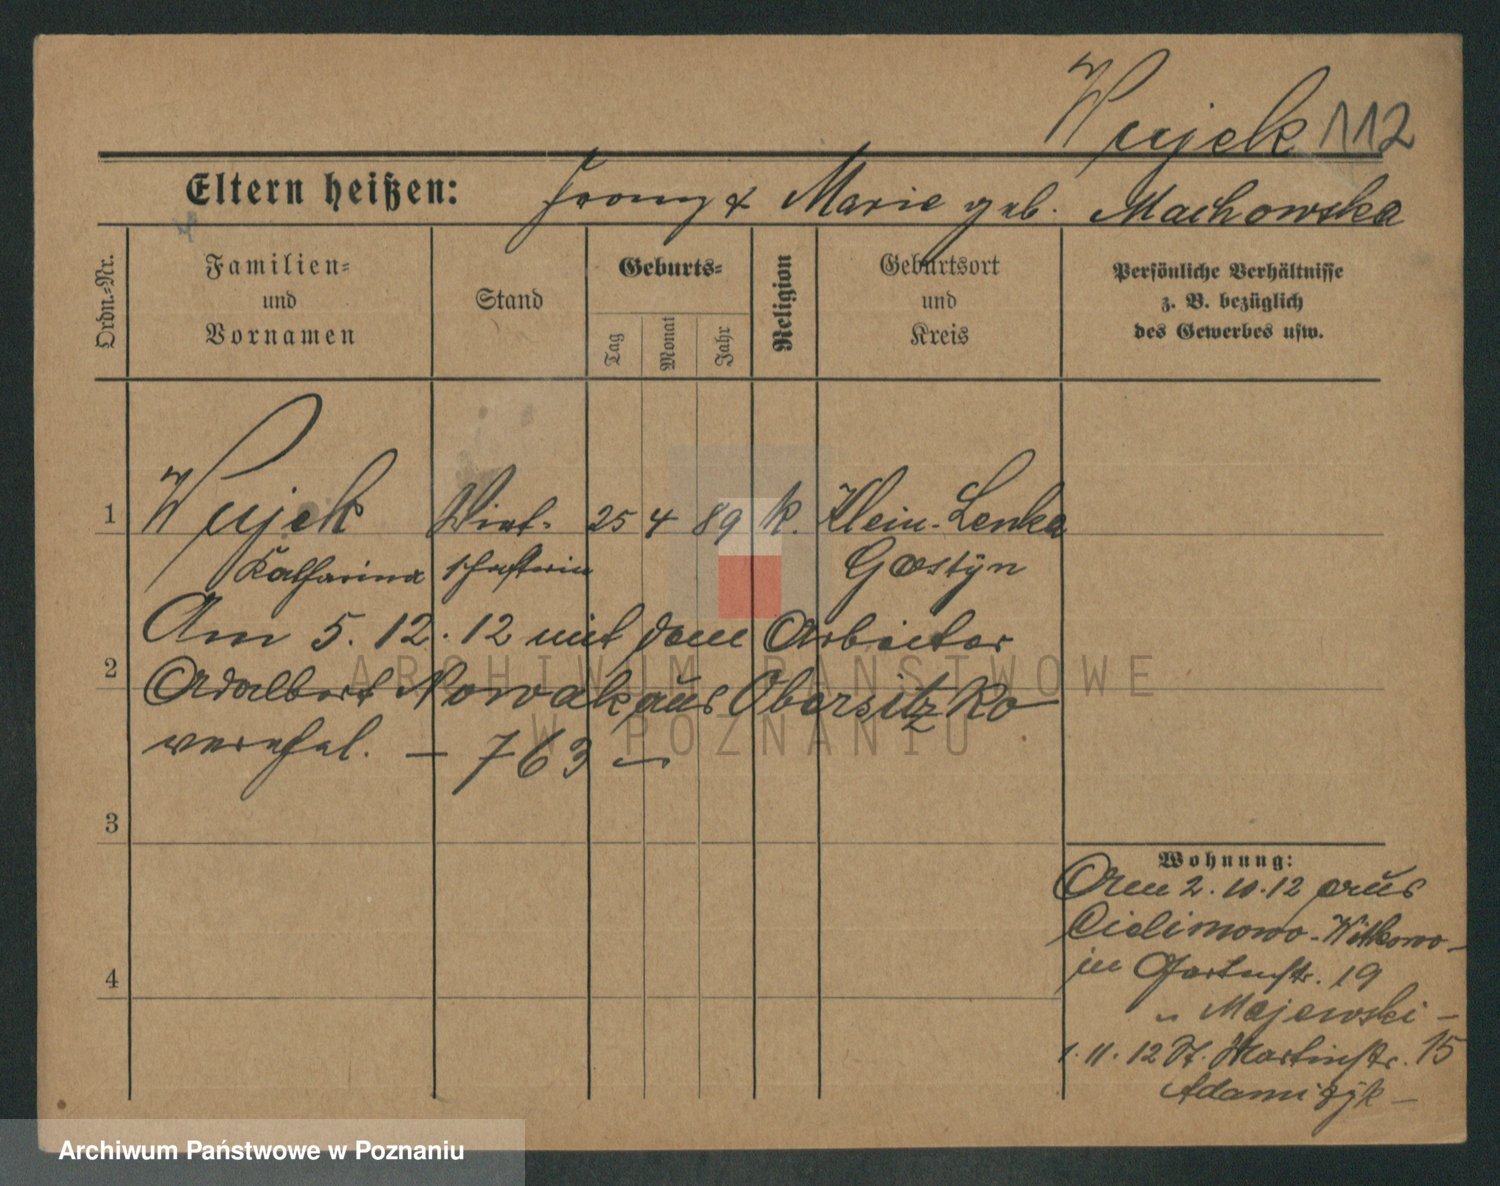 Wujek 112
Eltern heißen: Franz & Marie geb. Machowska
Ordn.-Nr.
Familien-
und
Vornamen
Stand
Geburts-
Tag
Monat
Jahr
Religion
Geburtsort
und
Kreis
Persönliche Verhältnisse
z. B. bezüglich
des Gewerbes usw.
1 Wujek Wirt- 25 4 89 k. Klein-Lenka
Katharina schafterin Gostyn
Am 5. 12. 12 mit dem Arbeiter
2 Adalbert Nowak aus Obersitzko
verehel. — 763 —
3
4
Wohnung:
Am 2. 10. 12 aus
Cielimowo-Witkowo-
in Gartenstr. 19
" Majewski -
1. 11. 12 St. Martinstr. 15
Adamczyk -
ARCHIWUM PAŃSTWOWE
W POZNANIU
Archiwum Państwowe w Poznaniu